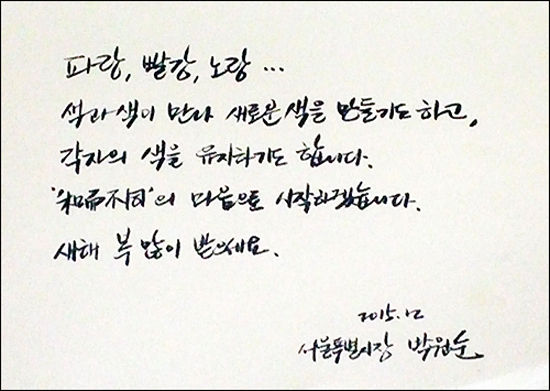 파랑, 빨강, 노랑 ...
색과 색이 만나 새로운 색을 만들기도 하고,
각자의 색을 유지하기도 합니다.
'和而不同'의 마음으로 시작하겠습니다.
새해 복 많이 받으세요.
2015.12
서울특별시장 박원순